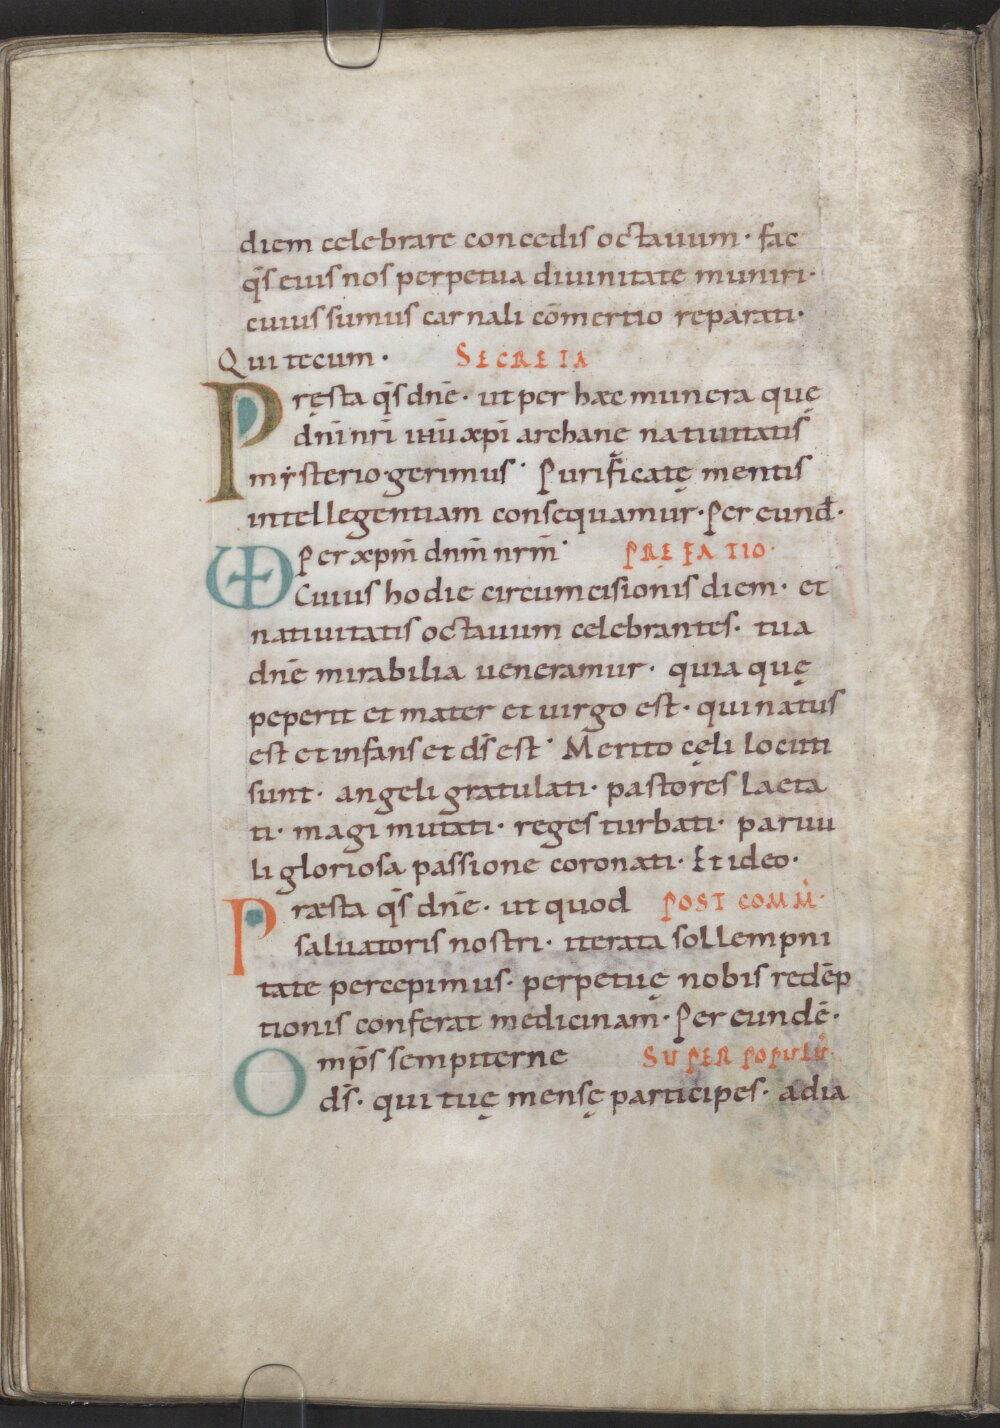 diem celebrare concedis octauum · fac
q̄s eius nos perpetua diuinitate muniri ·
cuius sumus carnali cōmertio reparati ·
Qui tecum · SECRETA
Pręsta q̄s dn̄e · ut per hæc munera quę
dn̄i nr̄i ihū xp̄i archanę natiuitatis
mẏsterio · gerimus · Purificatę mentis
intellegentiam consequamur · Per eund̄ ·
VD Per xp̄m dn̄m nr̄m · PREFATIO ·
Cuius hodie circumcisionis diem · et
natiuitatis octauum celebrantes · tua
dn̄e mirabilia ueneramur · quia quę
peperit et mater et uirgo est · qui natus
est et infans et ds̄ est · Merito cęli locuti
sunt · angeli gratulati · pastores laeta
ti · magi mutati · reges turbati · paruu
li gloriosa passione coronati · Et ideo ·
Præsta q̄s dn̄e · ut quod POST COMM̄ ·
saluatoris nostri · iterata sollempni
tate percepimus · perpetuę nobis redēp
tionis conferat medicinam · Per eundē ·
Omp̄s sempiterne SUPER POPULŪ ·
ds̄ · qui tuę mensę participes · a dia